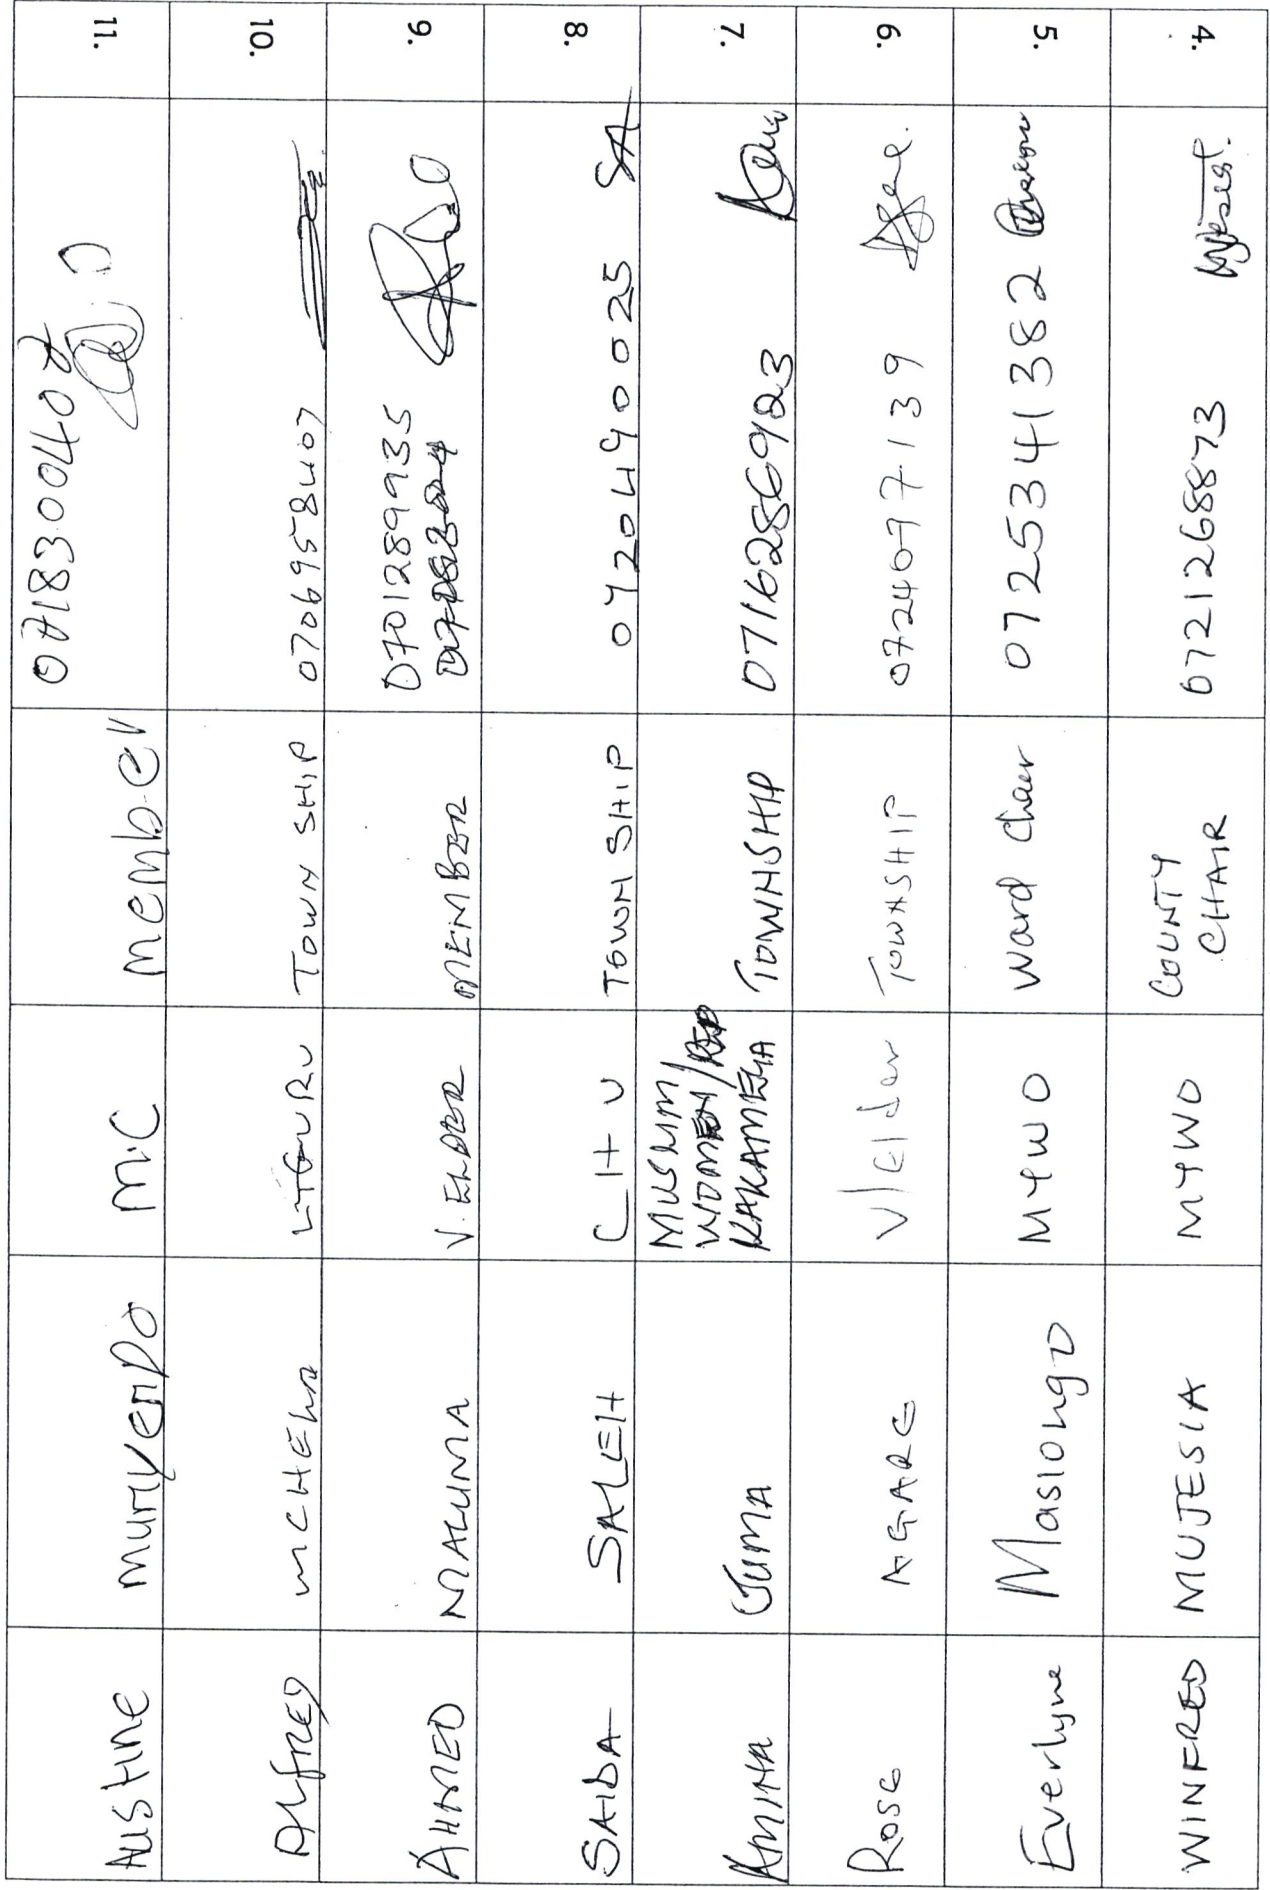 4. WINFRED MUJESIA MYWO COUNTY CHAIR 0721268873
5. Everlyne Masiongo MYWO Ward Chair 0725341382
6. Rose AGARE V/Elder TOWNSHIP 0724077139
7. AMINA JUMA MUSLIM WOMEN/REP KAKAMEGA TOWNSHIP 0716286923
8. SAIDA SALEH CHV TOWNSHIP 0720490025 SA
9. AHMED MALUMA V. ELDER MEMBER 0701289935
10. Alfred TOWN SHIP 0706958407
11. Austine M.C member